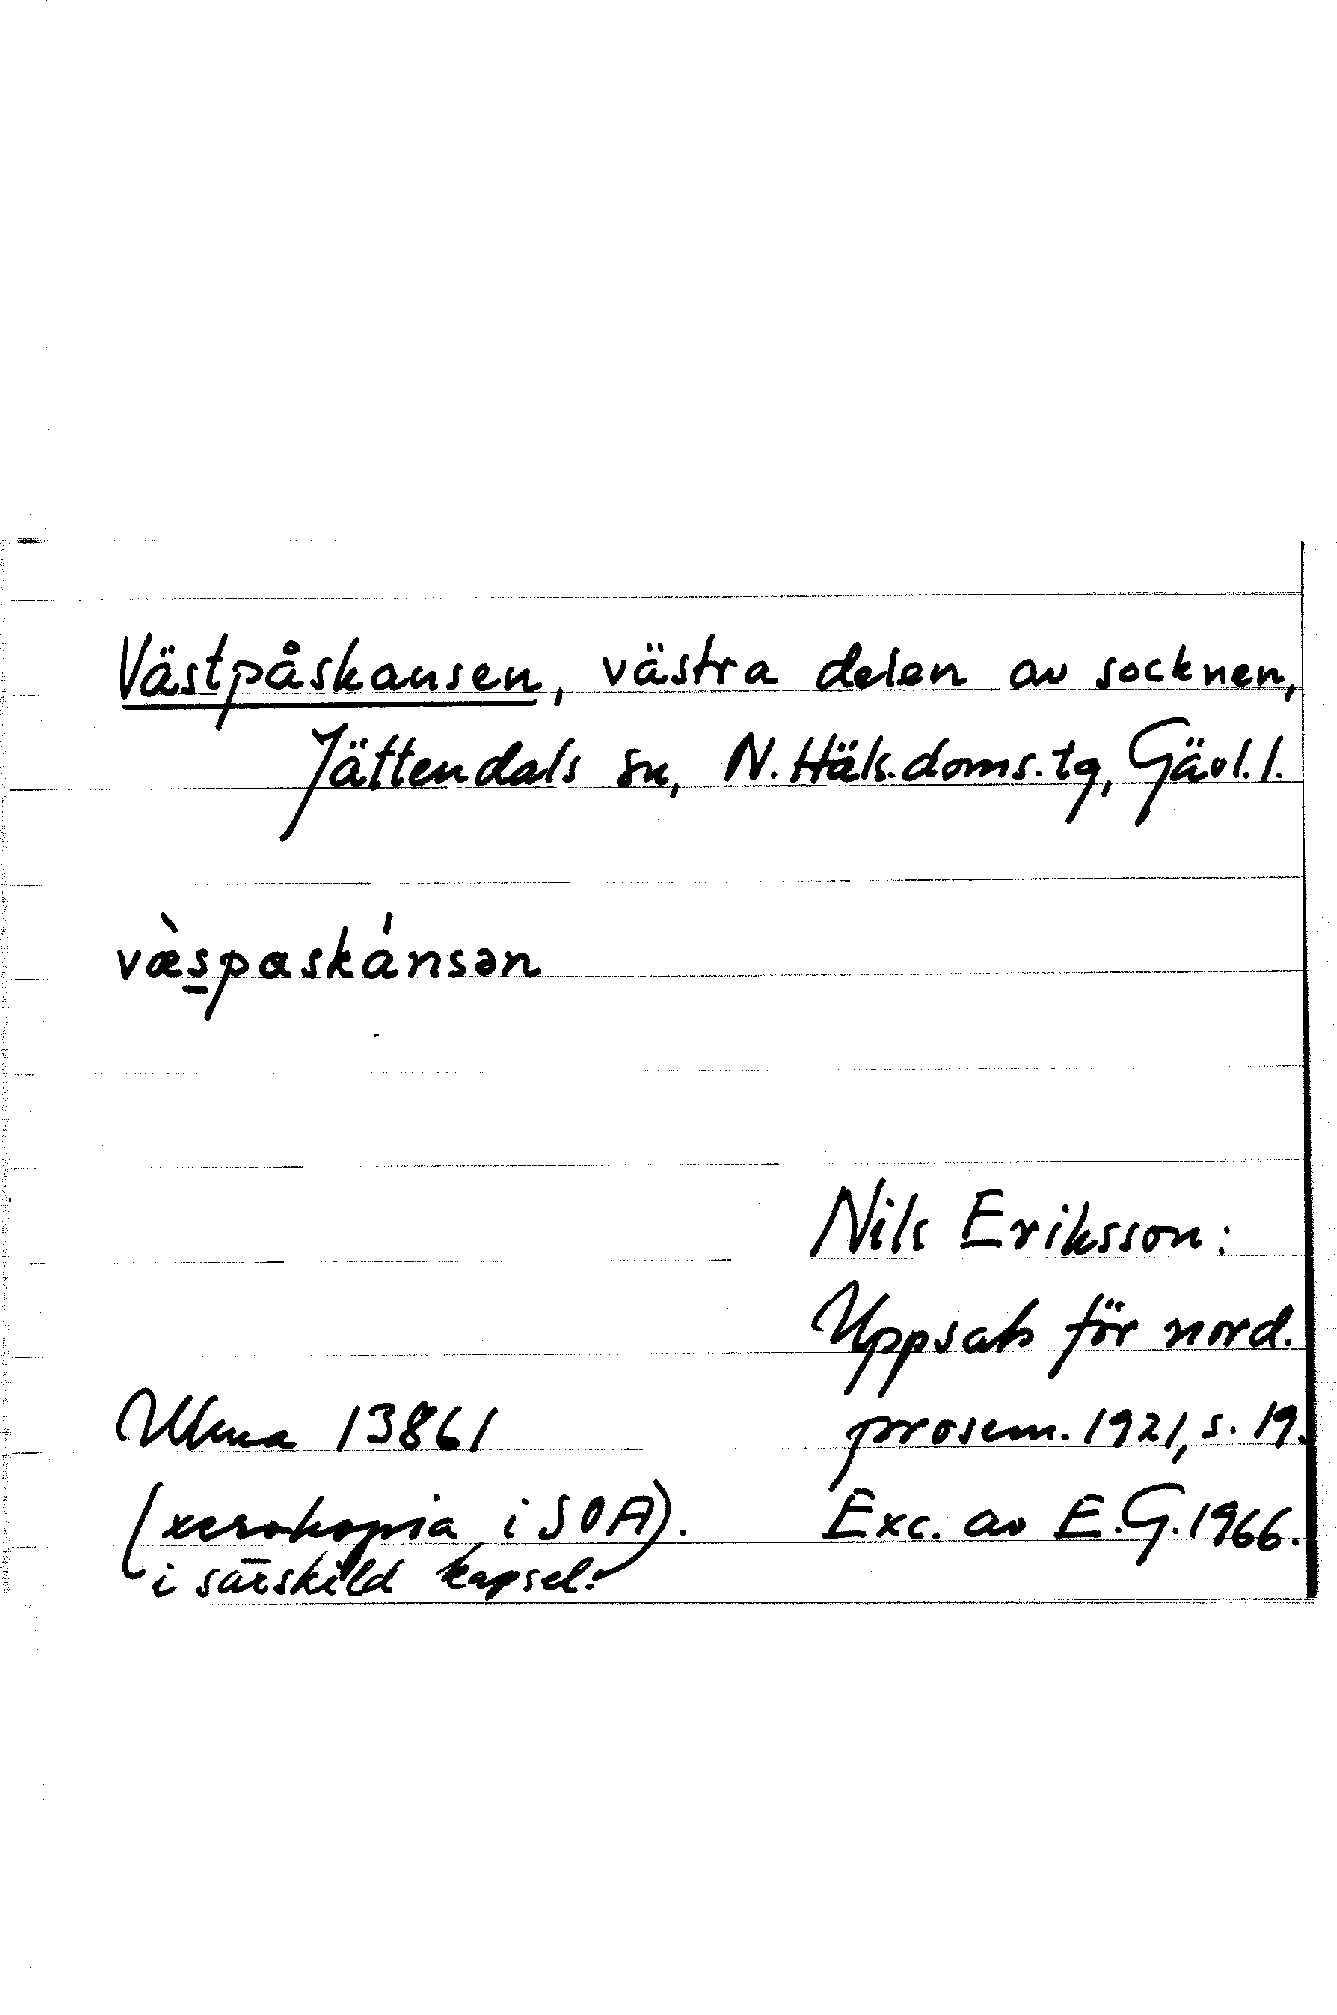 Västpåskansen, västra delen av socknen,
Jättendals sn, N. Häls. doms. tg, Gävl. l.
væ̀spaskánsən
Nils Eriksson:
Uppsats för nord.
prosem. 1921, s. 19.
Exc. av E. G. 1966.
Ulma 13861
(xerokopia i SOA).
i särskild kapsel.